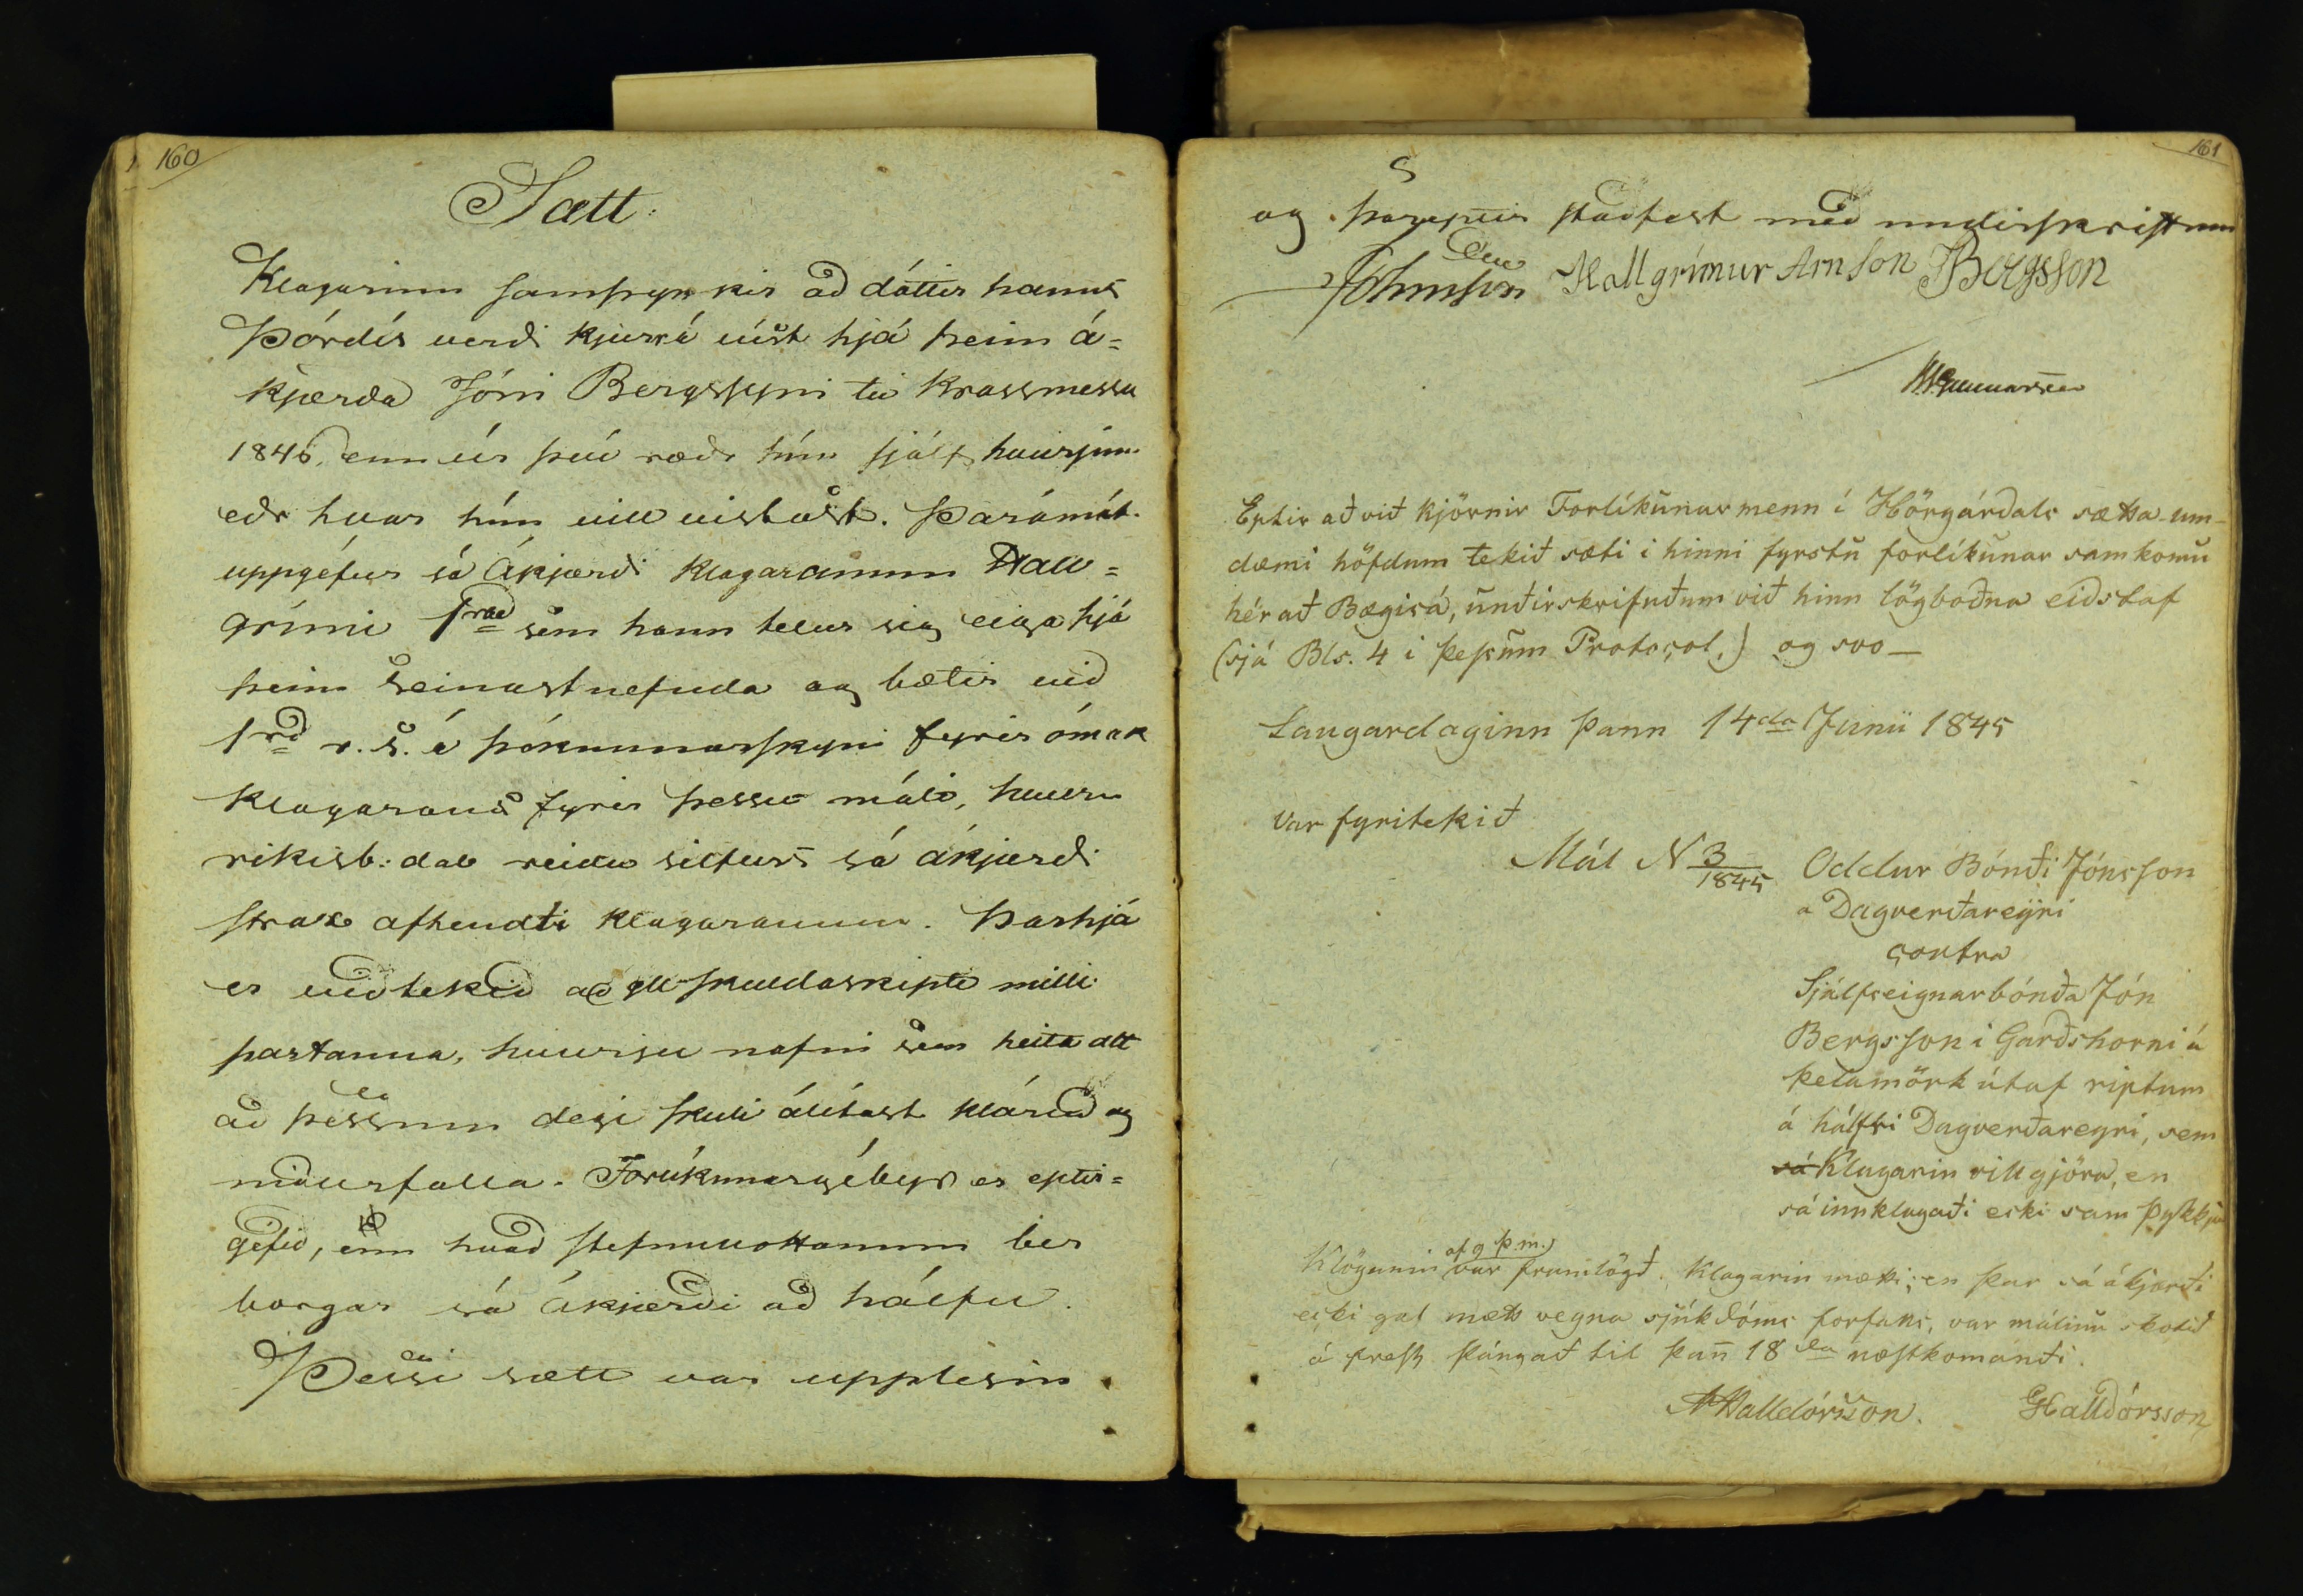 160
Sætt.
Klagarinn samþykkir að dóttir hanns
Þórdís verði kjurrá vist hjá þeim á=
kjærða Jóni Bergssyni til Krossmessu
1846, enn úr því ræðr hún sjálf hvursju
eðr hvar hún vill vistast. Þarámót
uppgefur sá Ákjærði klagaranum Hall=
grími 1rbd sem hann telur sig eiga hjá
þeim seinastnefnda og bætir við
1rd r. s. í þóknunarskyni fyrir ómak
klagarans fyrir þessu máli, hvurn
ríkisb: dal reiðu silfurs sá ákjærði
strax afhendti klagaranum. Þarhjá
er viðtekið að öll skuldaskipti milli
partanna, hvurju nafni sem heita allt
að þessum degi skuli álítast kláruð og
niðurfalla. Forlíkunargébyr er eptir=
géfið, enn hvað stefnuvottonum ber
borgar sá Ákjærði að hálfu.
Þessi sætt var upplesin
161
og þareptir staðfest með undirskriftum
Johnsen Hallgrímur Arnson JBergsson
Gunnarsen
Eptir að við kjörnir Forlíkunar menn í Hörgárdals sætta-um-
dæmi höfdum tekið sæti i hinni fyrstu forlíkunar samkomu
hér að Bægisá, undirskrifuðum við hinn lögboðna eidstaf
(sjá Bls. 4 i þessum Protocol,) og svo —
Laugardaginn þann 14da Junii 1845
Var fyritekið
Mál N 3/1845 Oddur Bóndi Jónsson
a Dagverðareÿri
contra
Sjálfseignarbónda Jón
Bergsson i Garðshorni á
þelamörk útaf riptum
á hálfri Dagverðareyri, sem
sá Klagarin vill gjöra, en
sá innklagaði ecki sam þykkja
af 9 þ.m.
Klögunin var framlögð. Klagarin mætti; en þar sá ákjærði
ecki gat mætt vegna sjúkdóms forfalls, var málinu skotið
á frest þángað til þan̄ 18da næstkomandi.
Halldórsson. GHalldórsson